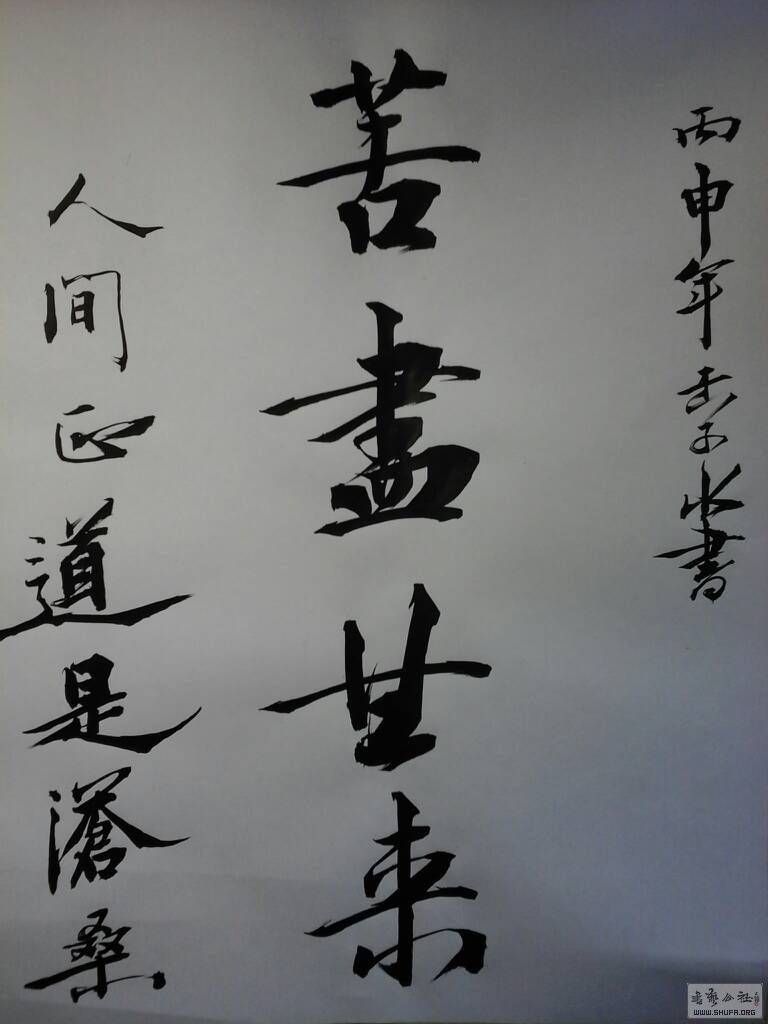 丙申年子水書
苦盡甘来
人间正道是滄桑
書藝公社
WWW.SHUFA.ORG